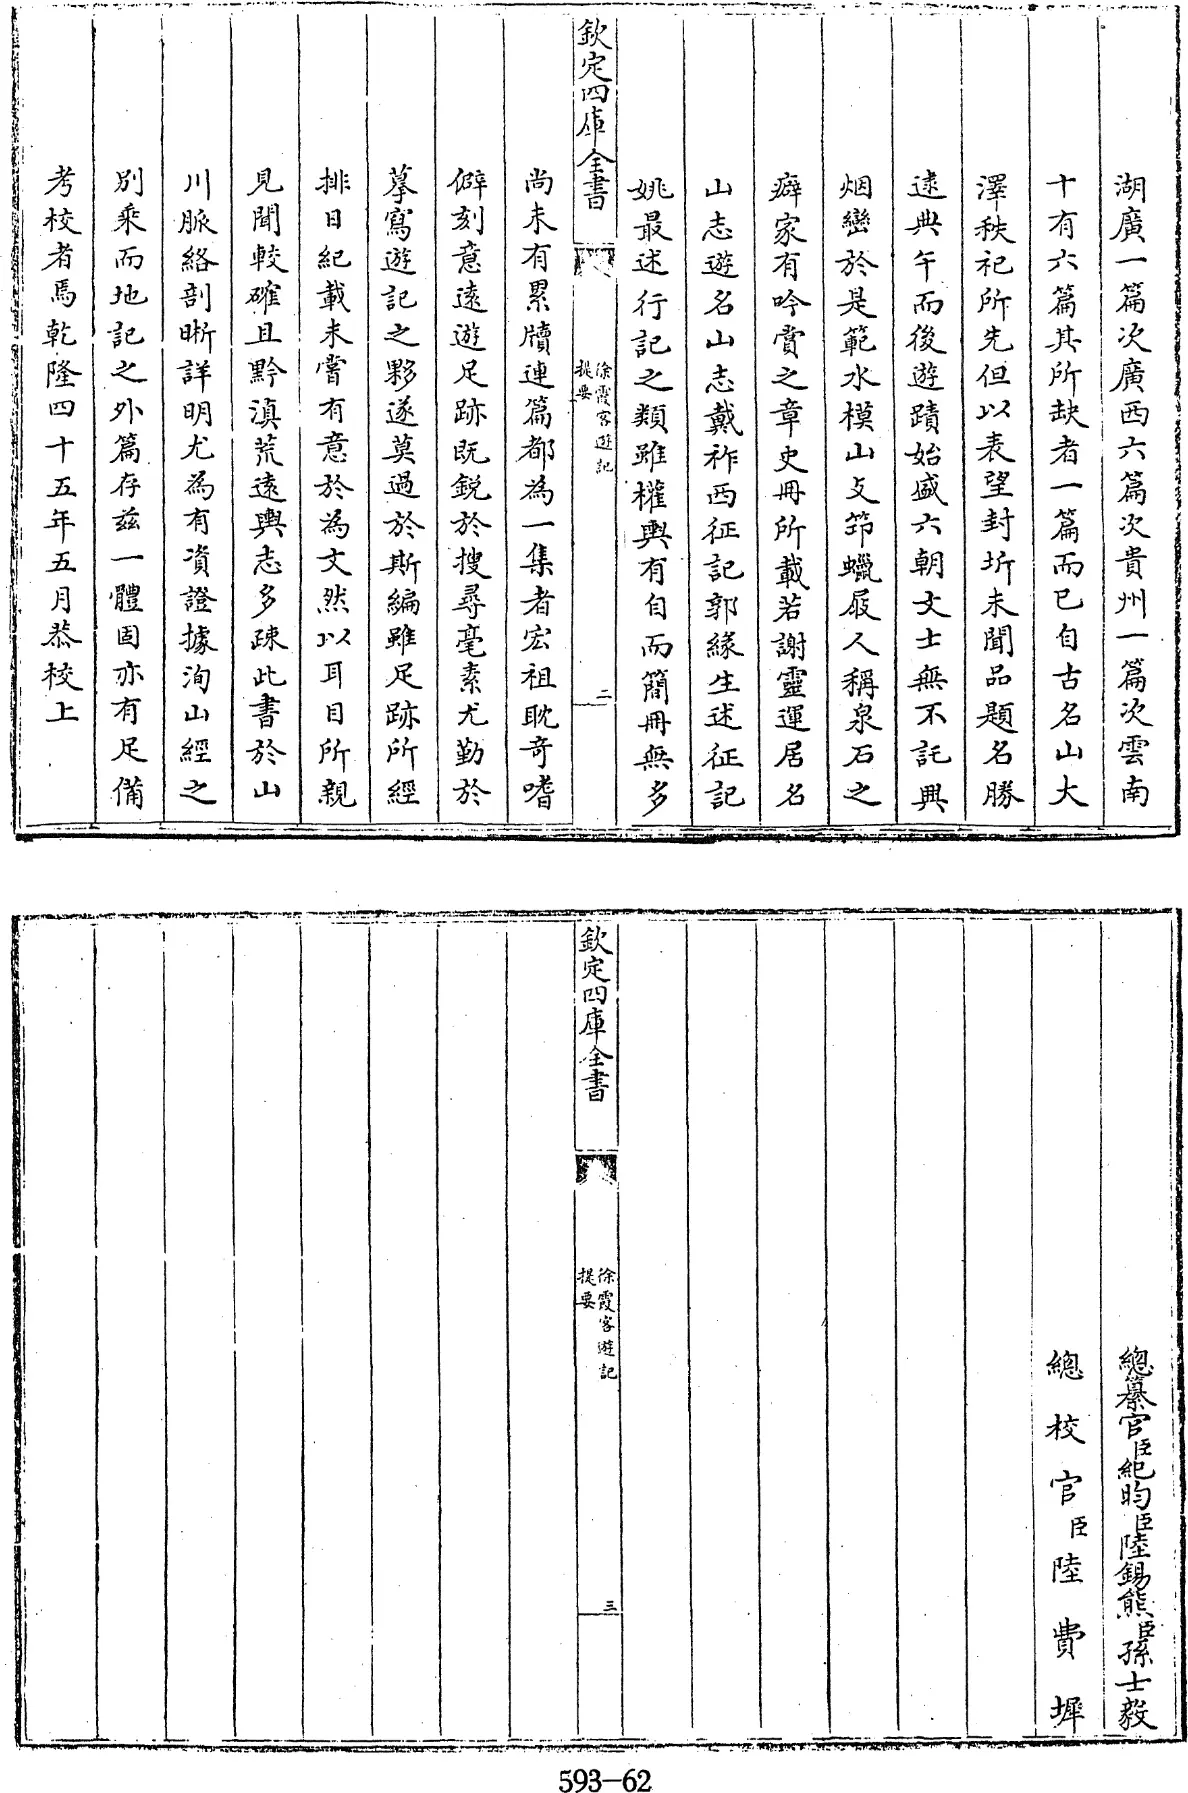 湖廣一篇次廣西六篇次貴州一篇次雲南
十有六篇其所缺者一篇而已自古名山大
澤秩祀所先但以表望封圻未聞品題名勝
逮典午而後遊蹟始盛六朝文士無不託興
烟巒於是範水模山支笻蠟屐人稱泉石之
癖家有吟賞之章史冊所載若謝靈運居名
山志遊名山志戴祚西征記郭緣生述征記
姚最述行記之類雖權輿有自而簡冊無多
欽定四庫全書
徐霞客遊記
提要
二
尚未有累牘連篇都為一集者宏祖耽奇嗜
僻刻意遠遊足跡既銳於搜尋毫素尤勤於
摹寫遊記之夥遂莫過於斯編雖足跡所經
排日紀載未嘗有意於為文然以耳目所親
見聞較確且黔滇荒遠輿志多疎此書於山
川脈絡剖晰詳明尤為有資證據洵山經之
別乘而地記之外篇存茲一體固亦有足備
考校者焉乾隆四十五年五月恭校上
總纂官臣紀昀臣陸錫熊臣孫士毅
總校官臣陸費墀
欽定四庫全書
徐霞客遊記
提要
三
593-62